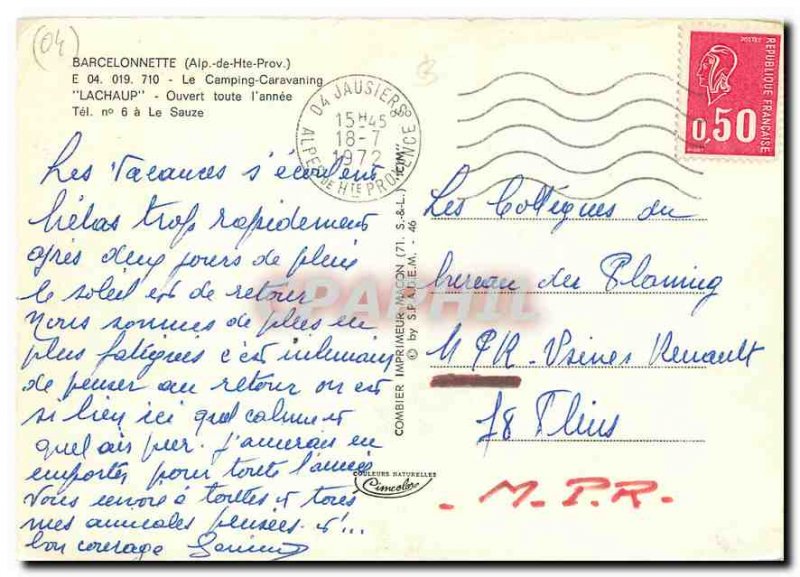 (04)
BARCELONNETTE (Alp.-de-Hte-Prov.)
E 04. 019. 710 - Le Camping-Caravaning
"LACHAUP" - Ouvert toute l'année
Tél. nº 6 à Le Sauze
04 JAUSIERS
15H45
18-7
1972
ALPES DE HTE PROVENCE
POSTES
REPUBLIQUE FRANÇAISE
0,50
Les Vacances s'écoulent
hélas trop rapidement
après deux jours de pluie
le soleil est de retour
Nous sommes de plus en
plus fatigués c'est inhumain
de penser au retour on est
si bien ici quel calme et
quel air pur. J'aimerais en
emporter pour toute l'année
Vous envoie à toutes et tous
mes amicales pensées et ...
bon courage
COMBIER IMPRIMEUR MACON (71. S.-&-L.) "CIM"
© by S.P.A.D.E.M. - 46
CARPHIL
COULEURS NATURELLES
Cimcolor
Les Collègues du
bureau du Planing
MPR - Usines Renault
78 Flins
- M.P.R. -